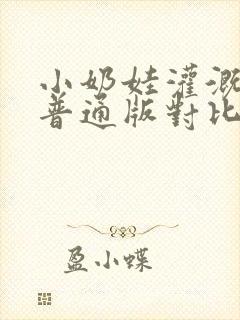 小奶娃灌溉
普通版對比
盈小蝶